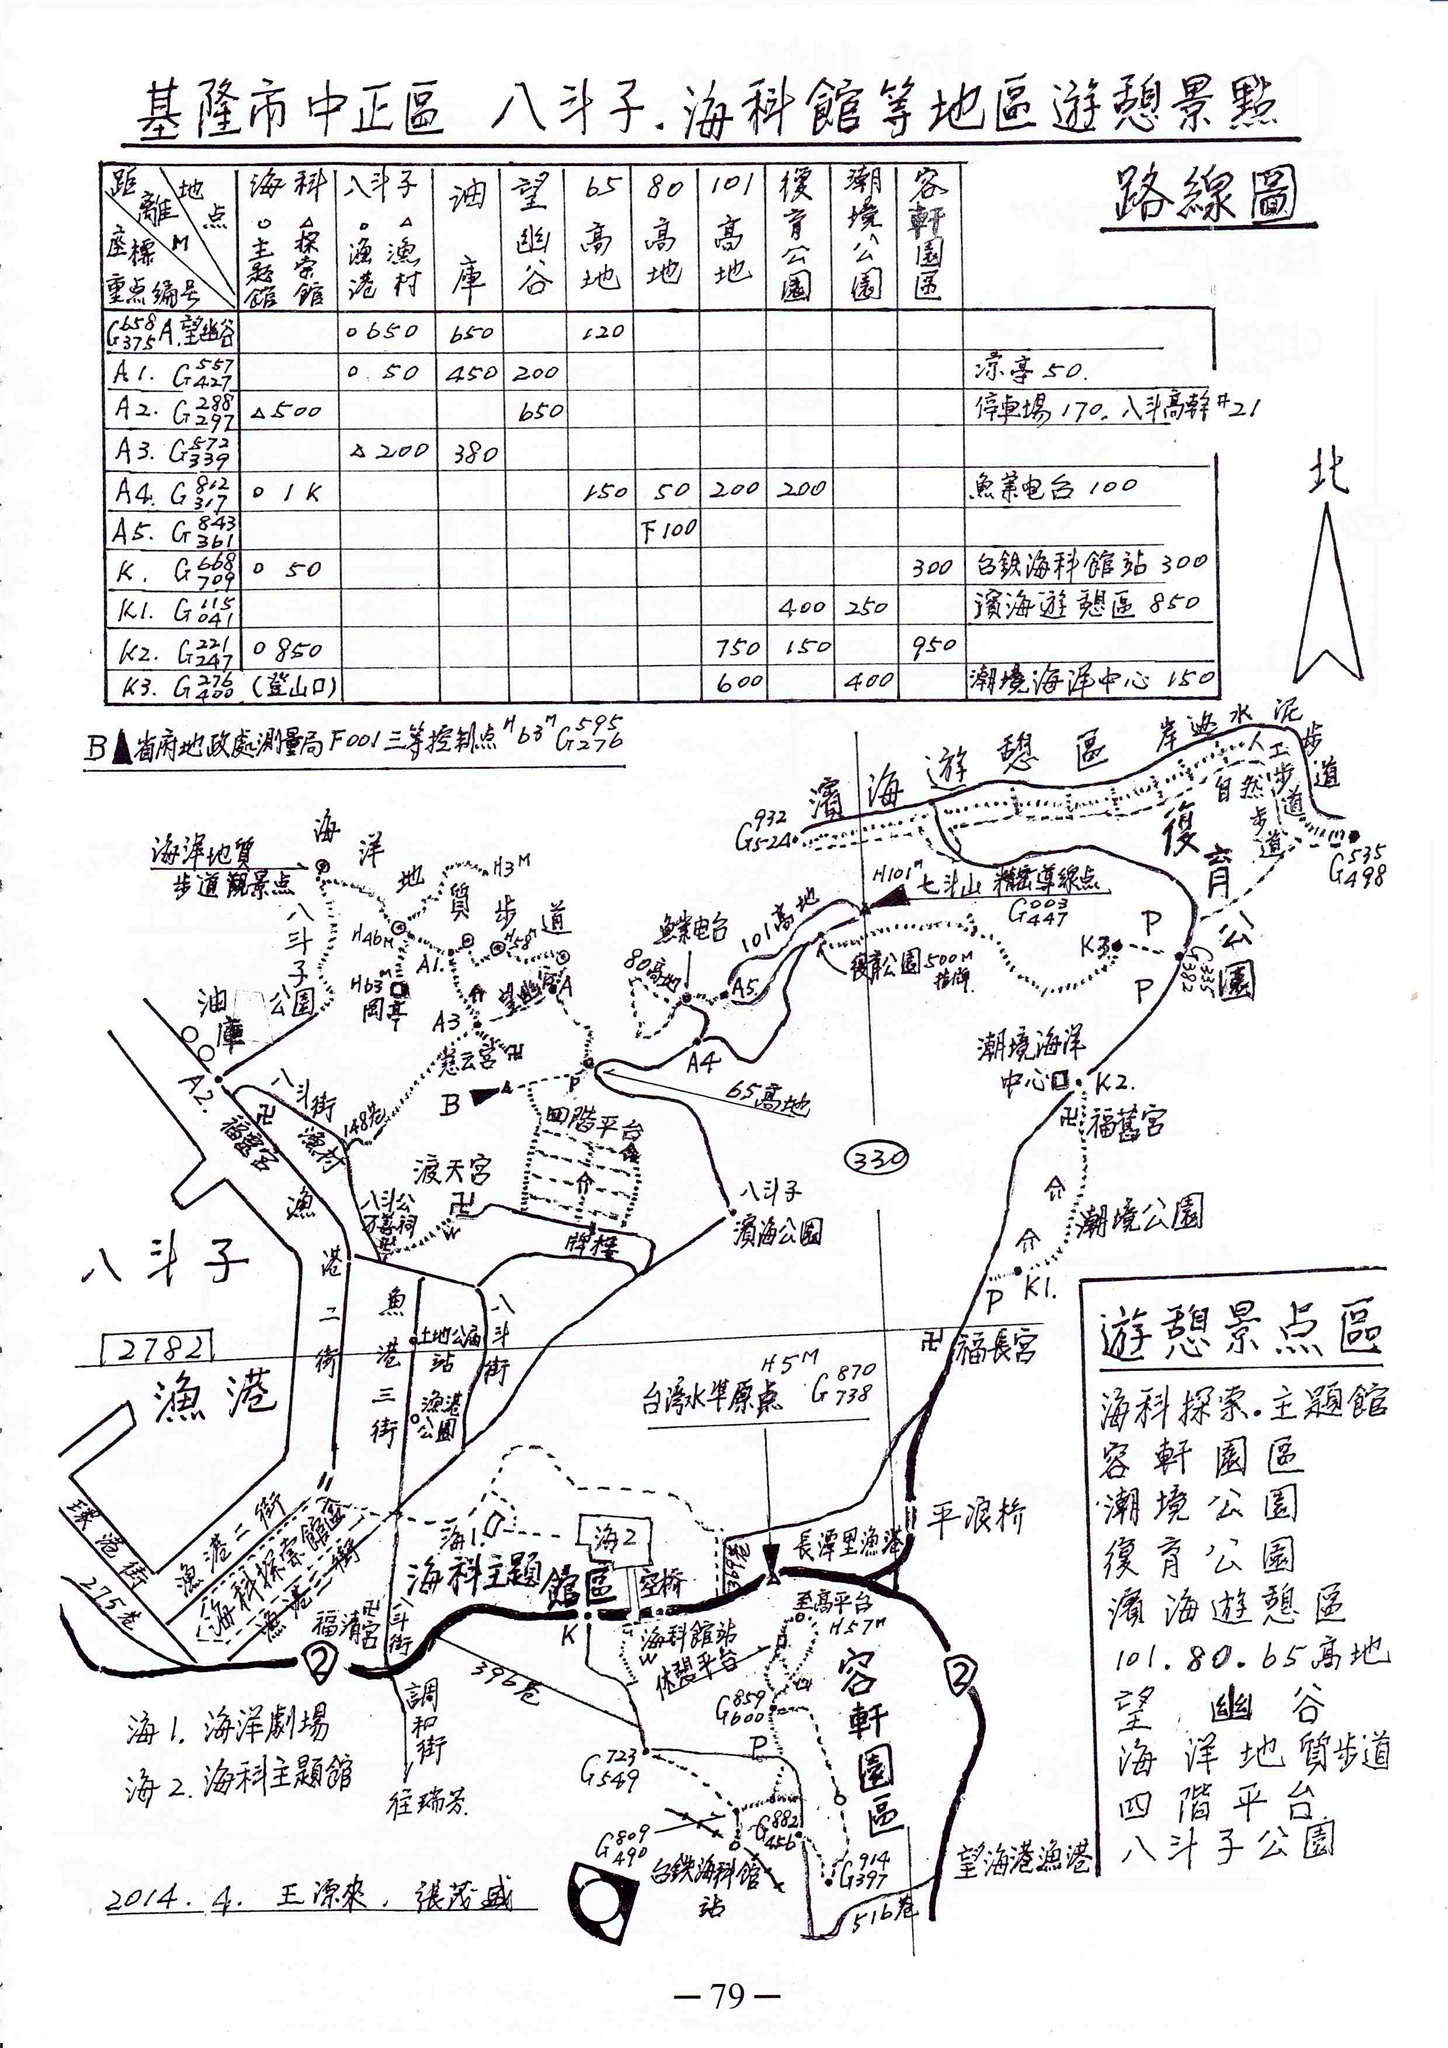 基隆市中正區 八斗子.海科館等地區遊憩景點
路線圖
距離M 地点 座標 重点編号
海科 ○主題館 △探索館
八斗子 ○漁港 △漁村
油庫
望幽谷
65高地
80高地
101高地
復育公園
潮境公園
容軒園區
G658 375 A.望幽谷 ○650 650 120
A1. G557 427 ○.50 450 200 凉亭50.
A2. G288 297 △500 650 停車場170.八斗高幹#21
A3. G572 339 △200 380
A4. G812 317 ○1K 150 50 200 200 魚業电台100
A5. G843 361 下100
K. G668 709 ○50 300 台鉄海科館站300
K1. G115 041 400 250 濱海遊憩區850
K2. G221 247 ○850 750 150 950
K3. G276 400 (登山口) 600 400 潮境海洋中心150
北
B▲省府地政處測量局F001三等控制点H63M G595 276
濱海遊憩區
岸边水泥步道
人工步道
自然步道
復育公園
G932 524
G535 498
海洋地質
步道觀景点
海洋地質步道
H3M
八斗子公園
H46M
H63M
岡亭
A1.
H58M
望幽谷
A
A3
慈云宮
油庫
A2.
八斗街
漁村
148巷
福靈宮
B
P
四階平台
渡天宮
牌樓
八斗公
万善祠
魚業电台
80高地
101高地
A5.
A4
65高地
H101M
七斗山 精密導線点
G003 447
復育公園500M
指牌
K3
P
P
G335 382
潮境海洋
中心
K2.
福舊宮
潮境公園
K1.
P
福長宮
330
八斗子
濱海公園
八斗子
2782
漁港
漁港二街
魚港三街
土地公庙
站
漁港
公園
八斗街
H5M
台湾水準原点 G870 738
環港街
275巷
漁港二街
海科探索館區
漁港三街
海1.
海2
海科主題館區
空橋
369巷
長潭里漁港
平浪桥
福清宮
八斗街
2
K
海科館站
休憩平台
至高平台
H57M
容軒園區
2
396巷
調和街
往瑞芳.
G859 600
P
G723 549
G809 490
G882 456
G914 397
台鉄海科館
站
516巷
望海港漁港
海1.海洋劇場
海2.海科主題館
2014.4.王源來.張茂盛
遊憩景点區
海科探索.主題館
容軒園區
潮境公園
復育公園
濱海遊憩區
101.80.65高地
望幽谷
海洋地質步道
四階平台
八斗子公園
— 79 —